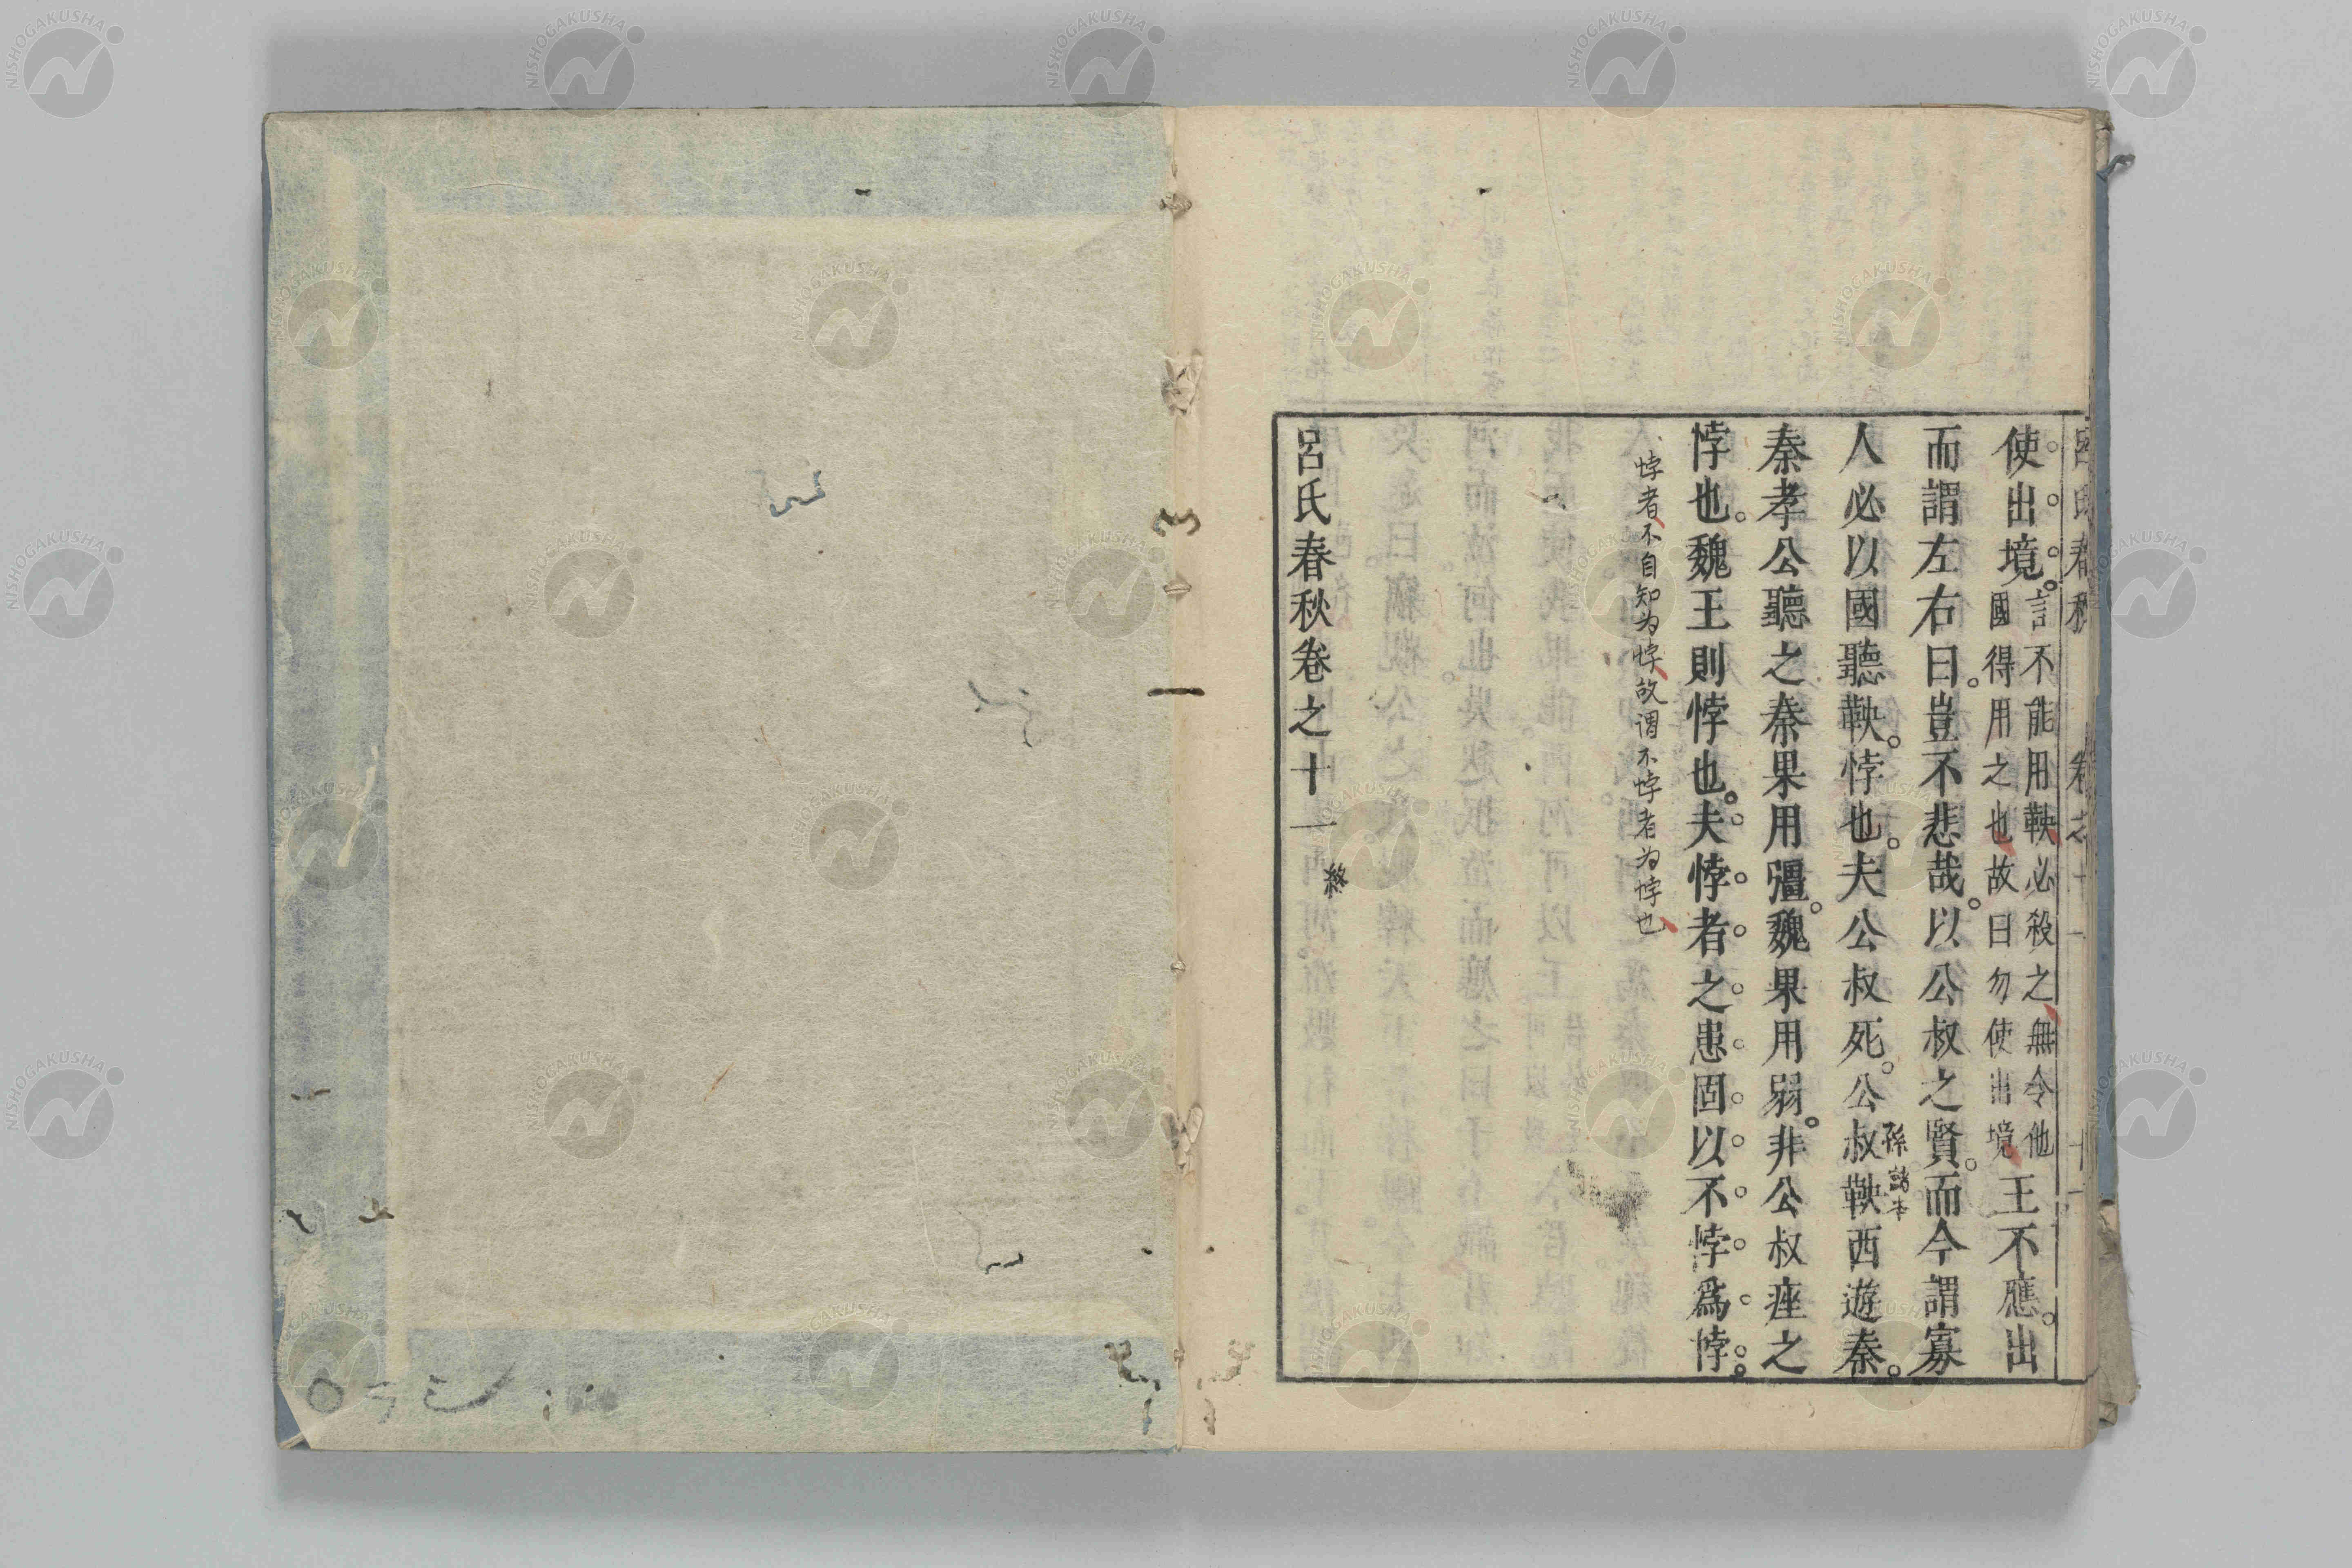 呂氏春秋 卷之十一 十一
使出境。言不能用鞅必殺之無令他
國得用之也故曰勿使出境
王不應。出
而謂左右曰。豈不悲哉。以公叔之賢。而今謂寡
人必以國聽鞅。悖也。夫公叔死。公叔鞅西遊秦。
孫諸本
秦孝公聽之秦果用彊。魏果用弱。非公叔痤之
悖也。魏王則悖也。夫悖者之患固以不悖爲悖。
悖者不自知为悖故谓不悖者为悖也
呂氏春秋卷之十一
終
NISHOGAKUSHA